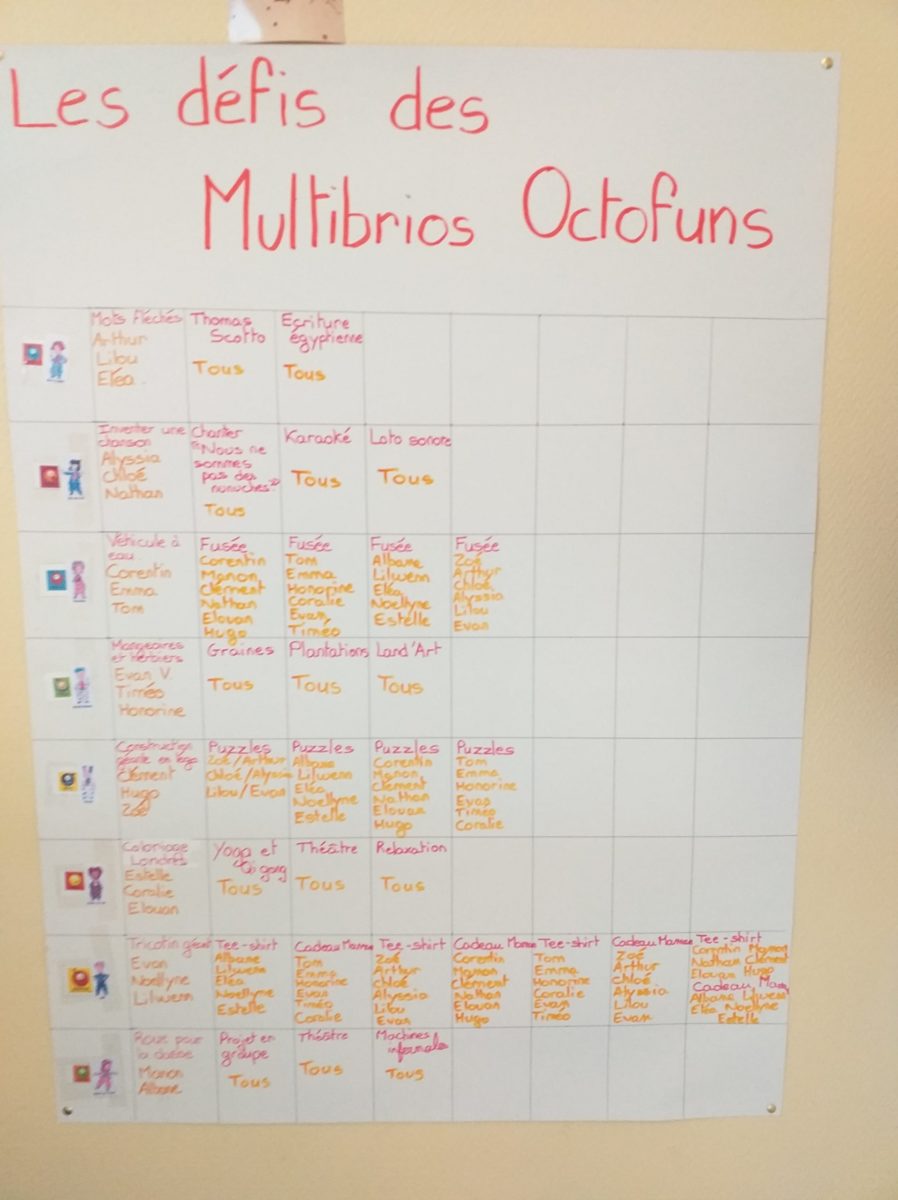 Les défis des
Multibrios Octofuns
Mots fléchés
Arthur
Lilou
Eléa
Thomas
Scotto
Tous
Ecriture
égyptienne
Tous
Inventer une
chanson
Alyssia
Chloé
Nathan
Chanter
"Nous ne
sommes
pas des
nunuches"
Tous
Karaoké
Tous
Loto sonore
Tous
Véhicule à
eau
Corentin
Emma
Tom
Fusée
Corentin
Manon
Clément
Nathan
Elouan
Hugo
Fusée
Tom
Emma
Honorine
Coralie
Evan
Timéo
Fusée
Albane
Lilwenn
Eléa
Noellyne
Estelle
Fusée
Zoé
Arthur
Chloé
Alyssia
Lilou
Evan
Mangeoires
et herbiers
Evan V.
Timéo
Honorine
Graines
Tous
Plantations
Tous
Land'Art
Tous
Construction
géante en légo
Clément
Hugo
Zoé
Puzzles
Zoé/Arthur
Chloé/Alyssia
Lilou/Evan
Puzzles
Albane
Lilwenn
Eléa
Noellyne
Estelle
Puzzles
Corentin
Manon
Clément
Nathan
Elouan
Hugo
Puzzles
Tom
Emma
Honorine
Evan
Timéo
Coralie
Coloriage
Londres
Estelle
Coralie
Elouan
Yoga et
Qi gong
Tous
Théâtre
Tous
Relaxation
Tous
Tricotin géant
Evan
Noellyne
Lilwenn
Tee-shirt
Albane
Lilwenn
Eléa
Noellyne
Estelle
Cadeau Maman
Tom
Emma
Honorine
Evan
Timéo
Coralie
Tee-shirt
Zoé
Arthur
Chloé
Alyssia
Lilou
Evan
Cadeau Maman
Corentin
Manon
Clément
Nathan
Elouan
Hugo
Tee-shirt
Tom
Emma
Honorine
Coralie
Evan
Timéo
Cadeau Maman
Zoé
Arthur
Chloé
Alyssia
Lilou
Evan
Tee-shirt
Corentin Manon
Nathan Clément
Elouan Hugo
Cadeau Maman
Albane Lilwenn
Eléa Noellyne
Estelle
pour
la danse
Manon
Albane
Projet en
groupe
Tous
Théâtre
Tous
Machines
infernales
Tous